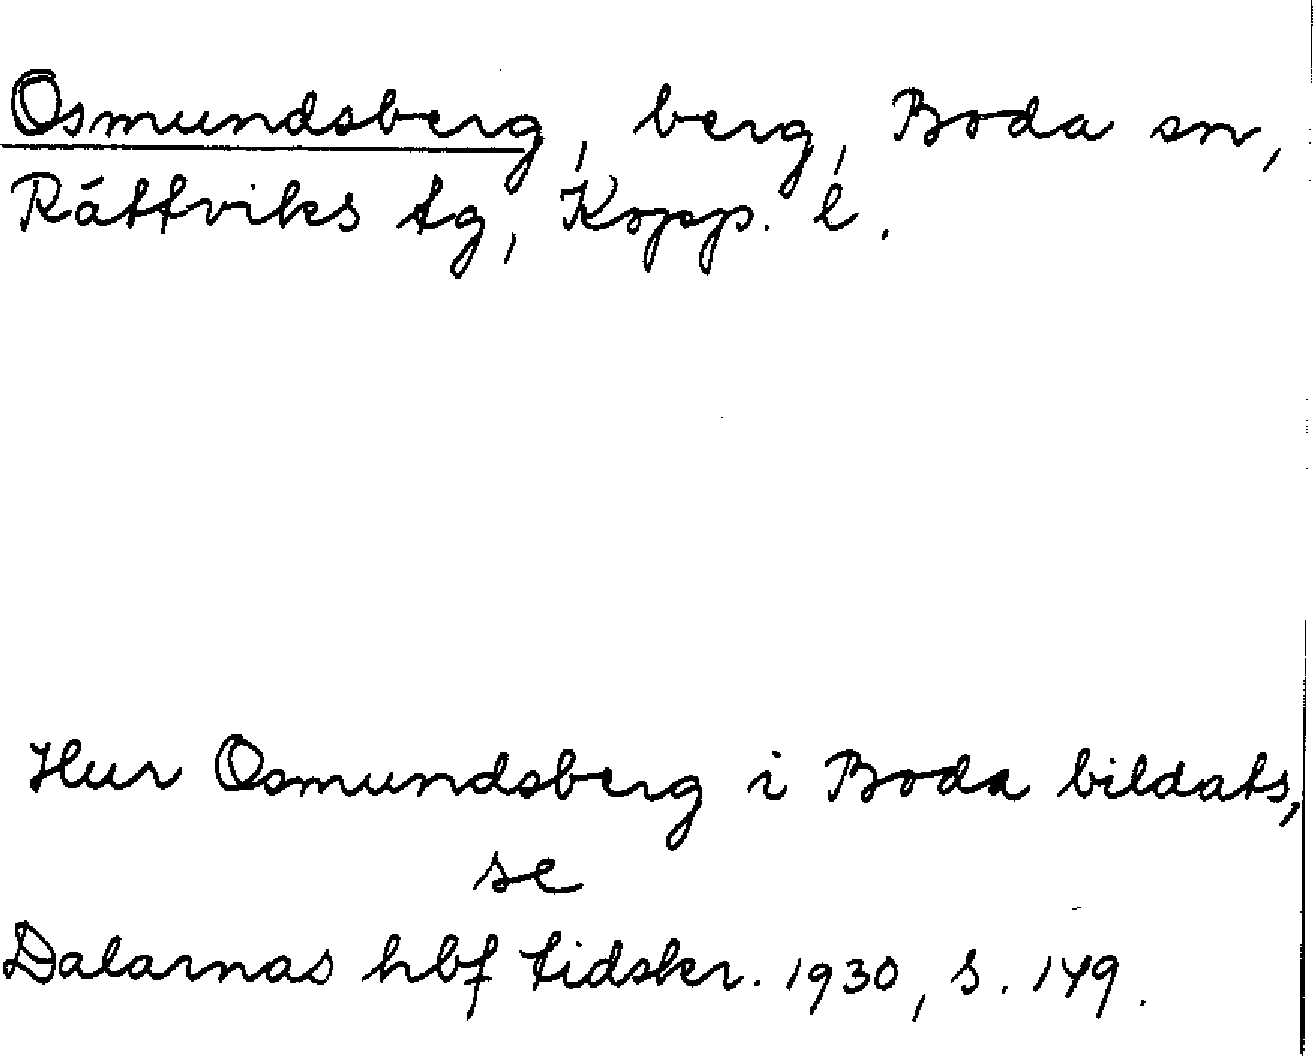 Osmundsberg, berg, Boda sn,
Rättviks tg, Kopp. l.
Hur Osmundsberg i Boda bildats,
se
Dalarnas hbf tidskr. 1930, s. 149.